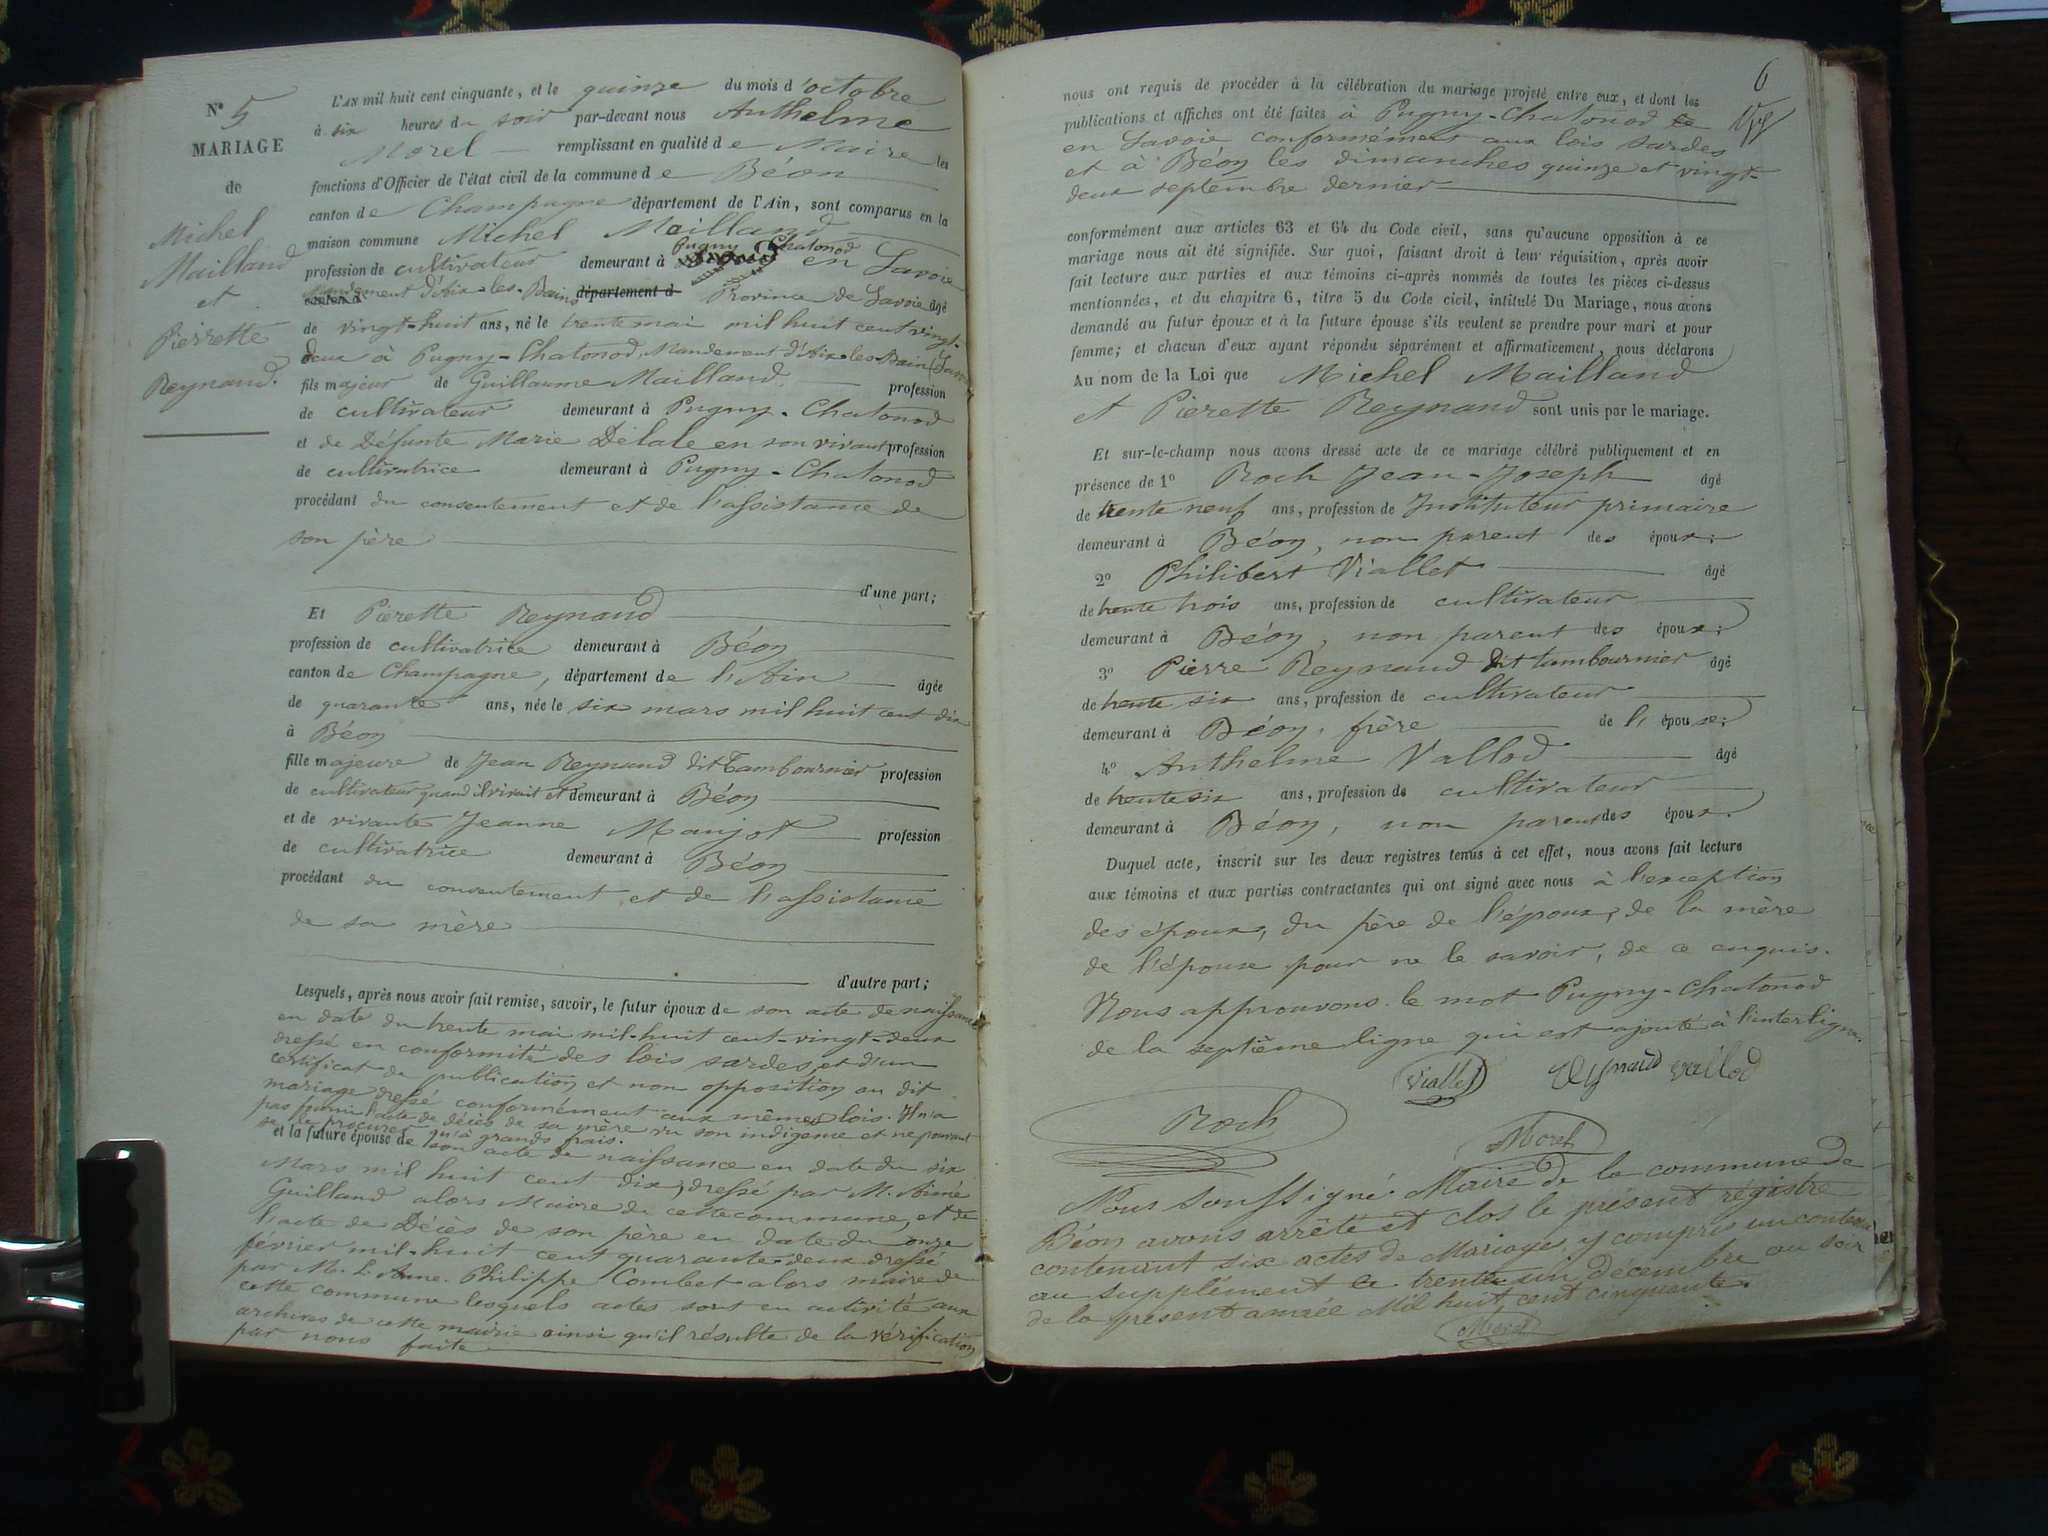 N° 5
MARIAGE
de
Michel
Mailland
et
Pierrette
Reynaud.
L'AN mil huit cent cinquante, et le quinze du mois d'octobre
à six heures du soir par-devant nous Anthelme
Morel remplissant en qualité de Maire les
fonctions d'Officier de l'état civil de la commune de Béon
canton de Champagne département de l'Ain, sont comparus en la
maison commune Michel Mailland
Pugny Chatonod
profession de cultivateur demeurant à en Savoie
Mandement d'Aix-les-Bains département d Province de Savoie âgé
de vingt-huit ans, né le trente mai mil huit cent vingt-
deux à Pugny-Chatonod, Mandement d'Aix-les-Bain (Savoie
fils majeur de Guillaume Mailland profession
de cultivateur demeurant à Pugny-Chatonod
et de Défunte Marie Délale en son vivant profession
de cultivatrice demeurant à Pugny-Chatonod
procédant du consentement et de l'assistance de
son père
d'une part;
Et Pierette Reynaud
profession de cultivatrice demeurant à Béon
canton de Champagne, département de l'Ain âgée
de quarante ans, née le six mars mil huit cent dix
à Béon
fille majeure de Jean Reynaud dit Tambournier profession
de cultivateur quand il vivait et demeurant à Béon
et de vivante Jeanne Manjot profession
de cultivatrice demeurant à Béon
procédant du consentement et de l'assistance
de sa mère
d'autre part;
Lesquels, après nous avoir fait remise, savoir, le futur époux de son acte de naissance
en date du trente mai mil-huit cent-vingt-deux
dressé en conformité des lois sardes, et d'un
certificat de publication et non opposition au dit
mariage dressé conformément aux mêmes lois. Il n'a
pas fourni l'acte de décès de sa mère vu son indigence et ne pouvant
se le procurer qu'à grands frais.
et la future épouse de son acte de naissance en date du six
Mars mil huit cent dix, dressé par M. Aimé
Guilland alors Maire de cette commune, et de
l'acte de Décès de son père en date du onze
février mil-huit cent quarante-deux dressé
par M. L. Anne. Philippe Combet alors maire de
cette commune lesquels actes sont en activité aux
archives de cette mairie ainsi qu'il résulte de la vérification
par nous faite
6
nous ont requis de procéder à la célébration du mariage projeté entre eux, et dont les
publications et affiches ont été faites à Pugny-Chatonod
en Savoie conformément aux lois sardes
et à Béon les dimanches quinze et vingt-
deux septembre dernier
conformément aux articles 63 et 64 du Code civil, sans qu'aucune opposition à ce
mariage nous ait été signifiée. Sur quoi, faisant droit à leur réquisition, après avoir
fait lecture aux parties et aux témoins ci-après nommés de toutes les pièces ci-dessus
mentionnées, et du chapitre 6, titre 5 du Code civil, intitulé Du Mariage, nous avons
demandé au futur époux et à la future épouse s'ils veulent se prendre pour mari et pour
femme; et chacun d'eux ayant répondu séparément et affirmativement, nous déclarons
Au nom de la Loi que Michel Mailland
et Pierette Reynaud sont unis par le mariage.
Et sur-le-champ nous avons dressé acte de ce mariage célébré publiquement et en
présence de 1° Roch Jean-Joseph âgé
de trente neuf ans, profession de Instituteur primaire
demeurant à Béon, non parent des époux;
2° Philibert Viallet âgé
de trente trois ans, profession de cultivateur
demeurant à Béon, non parent des époux;
3° Pierre Reynaud dit tambournier âgé
de trente six ans, profession de cultivateur
demeurant à Béon, frère de l'épouse;
4° Anthelme Vallod âgé
de trente six ans, profession de cultivateur
demeurant à Béon, non parent des époux.
Duquel acte, inscrit sur les deux registres tenus à cet effet, nous avons fait lecture
aux témoins et aux parties contractantes qui ont signé avec nous à l'exception
des époux, du père de l'époux, de la mère
de l'épouse pour ne le savoir, de ce enquis.
Nous approuvons le mot Pugny-Chatonod
de la septième ligne qui est ajouté à l'interligne.
Viallet Reynaud Vallod
Roch
Morel
Nous soussigné Maire de la commune de
Béon avons arrêté et clos le présent régistre
contenant six actes de Mariage, y compris un contenu
au supplément ce trente un decembre au soir
de la présent année Mil huit cent cinquante.
Morel